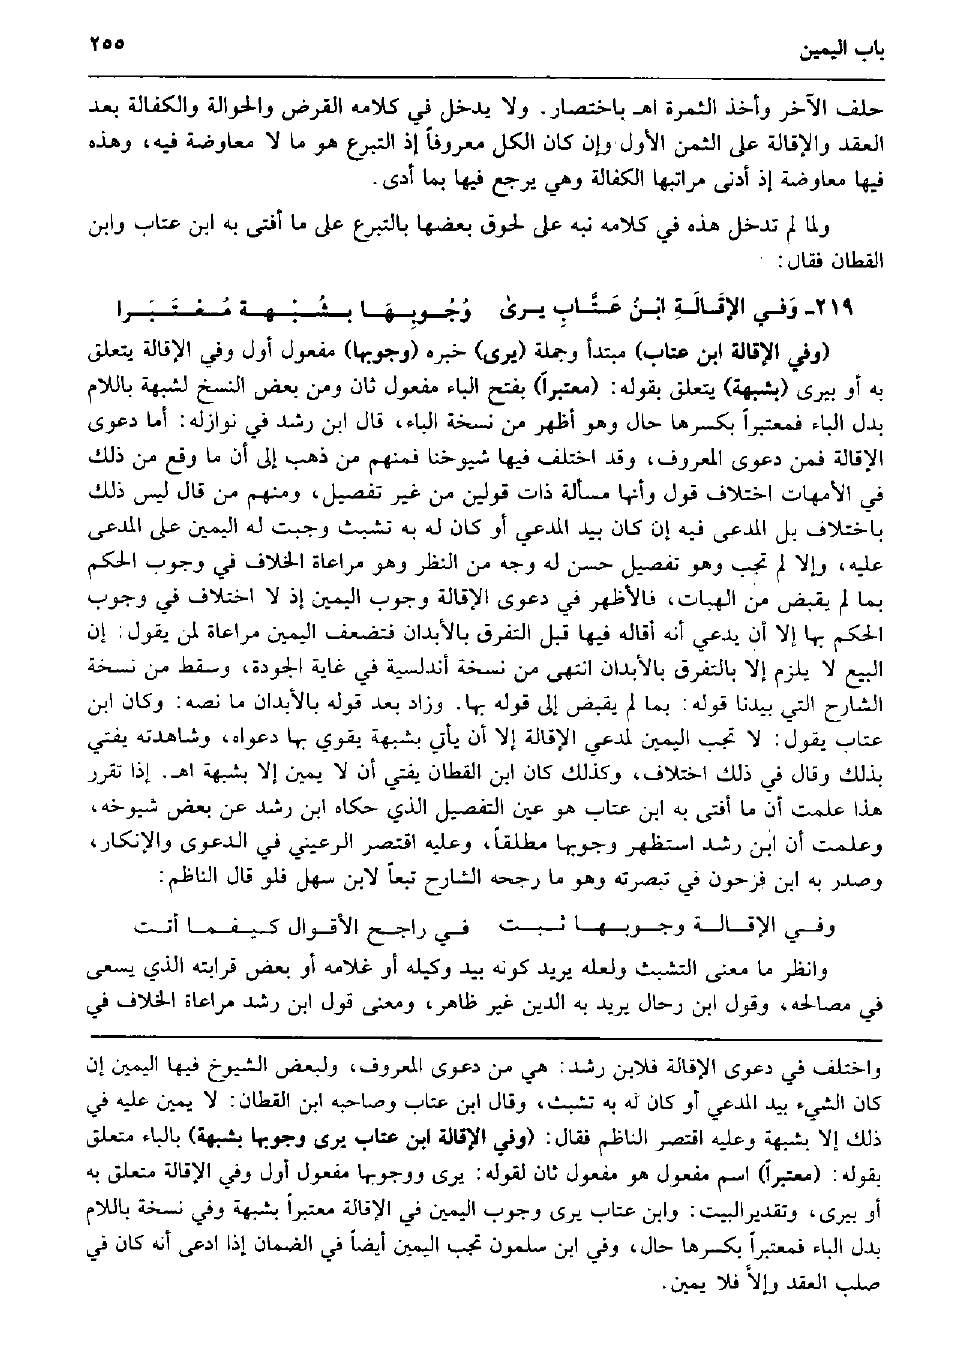 باب اليمين ٢٥٥
حلف الآخر وأخذ الثمرة اهـ باختصار. ولا يدخل في كلامه القرض والحوالة والكفالة بعد
العقد والإقالة على الثمن الأول وإن كان الكل معروفاً إذ التبرع هو ما لا معاوضة فيه، وهذه
فيها معاوضة إذ أدنى مراتبها الكفالة وهي يرجع فيها بما أدى.
ولما لم تدخل هذه في كلامه نبه على لحوق بعضها بالتبرع على ما أفتى به ابن عتاب وابن
القطان فقال:
٢١٩ـ وَفـي الإقَـالَـةِ ابْـنُ عَـتَّـابٍ يـرىٰ وُجُـوبِـهَـا بـشُـبْـهـة مُـعْـتَـبَـرا
(وفي الإقالة ابن عتاب) مبتدأ وجملة (يرى) خبره (وجوبها) مفعول أول وفي الإقالة يتعلق
به أو بيرى (بشبهة) يتعلق بقوله: (معتبراً) بفتح الباء مفعول ثان ومن بعض النسخ لشبهة باللام
بدل الباء فمعتبراً بكسرها حال وهو أظهر من نسخة الباء، قال ابن رشد في نوازله: أما دعوى
الإقالة فمن دعوى المعروف، وقد اختلف فيها شيوخنا فمنهم من ذهب إلى أن ما وقع من ذلك
في الأمهات اختلاف قول وأنها مسألة ذات قولين من غير تفصيل، ومنهم من قال ليس ذلك
باختلاف بل المدعى فيه إن كان بيد المدعي أو كان له به تشبث وجبت له اليمين على المدعى
عليه، وإلا لم تجب وهو تفصيل حسن له وجه من النظر وهو مراعاة الخلاف في وجوب الحكم
بما لم يقبض من الهبات، فالأظهر في دعوى الإقالة وجوب اليمين إذ لا اختلاف في وجوب
الحكم بها إلا أن يدعي أنه أقاله فيها قبل التفرق بالأبدان فتضعف اليمين مراعاة لمن يقول: إن
البيع لا يلزم إلا بالتفرق بالأبدان انتهى من نسخة أندلسية في غاية الجودة، وسقط من نسخة
الشارح التي بيدنا قوله: بما لم يقبض إلى قوله بها. وزاد بعد قوله بالأبدان ما نصه: وكان ابن
عتاب يقول: لا تجب اليمين لمدعي الإقالة إلا أن يأتي بشبهة يقوي بها دعواه، وشاهدته يفتي
بذلك وقال في ذلك اختلاف، وكذلك كان ابن القطان يفتي أن لا يمين إلا بشبهة اهـ. إذا تقرر
هذا علمت أن ما أفتى به ابن عتاب هو عين التفصيل الذي حكاه ابن رشد عن بعض شيوخه،
وعلمت أن ابن رشد استظهر وجوبها مطلقاً، وعليه اقتصر الرعيني في الدعوى والإنكار،
وصدر به ابن فرحون في تبصرته وهو ما رجحه الشارح تبعاً لابن سهل فلو قال الناظم:
وفـي الإقـالـة وجـوبـهـا ثـبـت فـي راجـح الأقـوال كـيـفـمـا أتـت
وانظر ما معنى التشبث ولعله يريد كونه بيد وكيله أو غلامه أو بعض قرابته الذي يسعى
في مصالحه، وقول ابن رحال يريد به الدين غير ظاهر، ومعنى قول ابن رشد مراعاة الخلاف في
واختلف في دعوى الإقالة فلابن رشد: هي من دعوى المعروف، ولبعض الشيوخ فيها اليمين إن
كان الشيء بيد المدعي أو كان له به تشبث، وقال ابن عتاب وصاحبه ابن القطان: لا يمين عليه في
ذلك إلا بشبهة وعليه اقتصر الناظم فقال: (وفي الإقالة ابن عتاب يرى وجوبها بشبهة) بالباء متعلق
بقوله: (معتبراً) اسم مفعول هو مفعول ثان لقوله: يرى ووجوبها مفعول أول وفي الإقالة متعلق به
أو بيرى، وتقديرالبيت: وابن عتاب يرى وجوب اليمين في الإقالة معتبراً بشبهة وفي نسخة باللام
بدل الباء فمعتبراً بكسرها حال، وفي ابن سلمون تجب اليمين أيضاً في الضمان إذا ادعى أنه كان في
صلب العقد وإلاَّ فلا يمين.